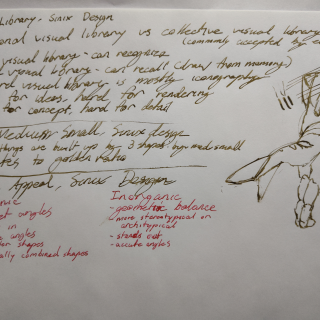 Library - Sinix Design
onal visual library vs collective visual library
(commonly accepted by e
visual library - can recognize
library - can recall (draw from memory)
visual library is mostly iconography
for ideas, hard for rendering
for concept, hard for detail
Medium Small, Sinix design
things are built up by 3 shapes big med small
tes to golden ratio
Appeal, Sinix Design
nic
Inorganic
t angles
- geometric balance
in
- more stereotypical or
architypical
angles
- stands out
shapes
- accute angles
ally combined shapes